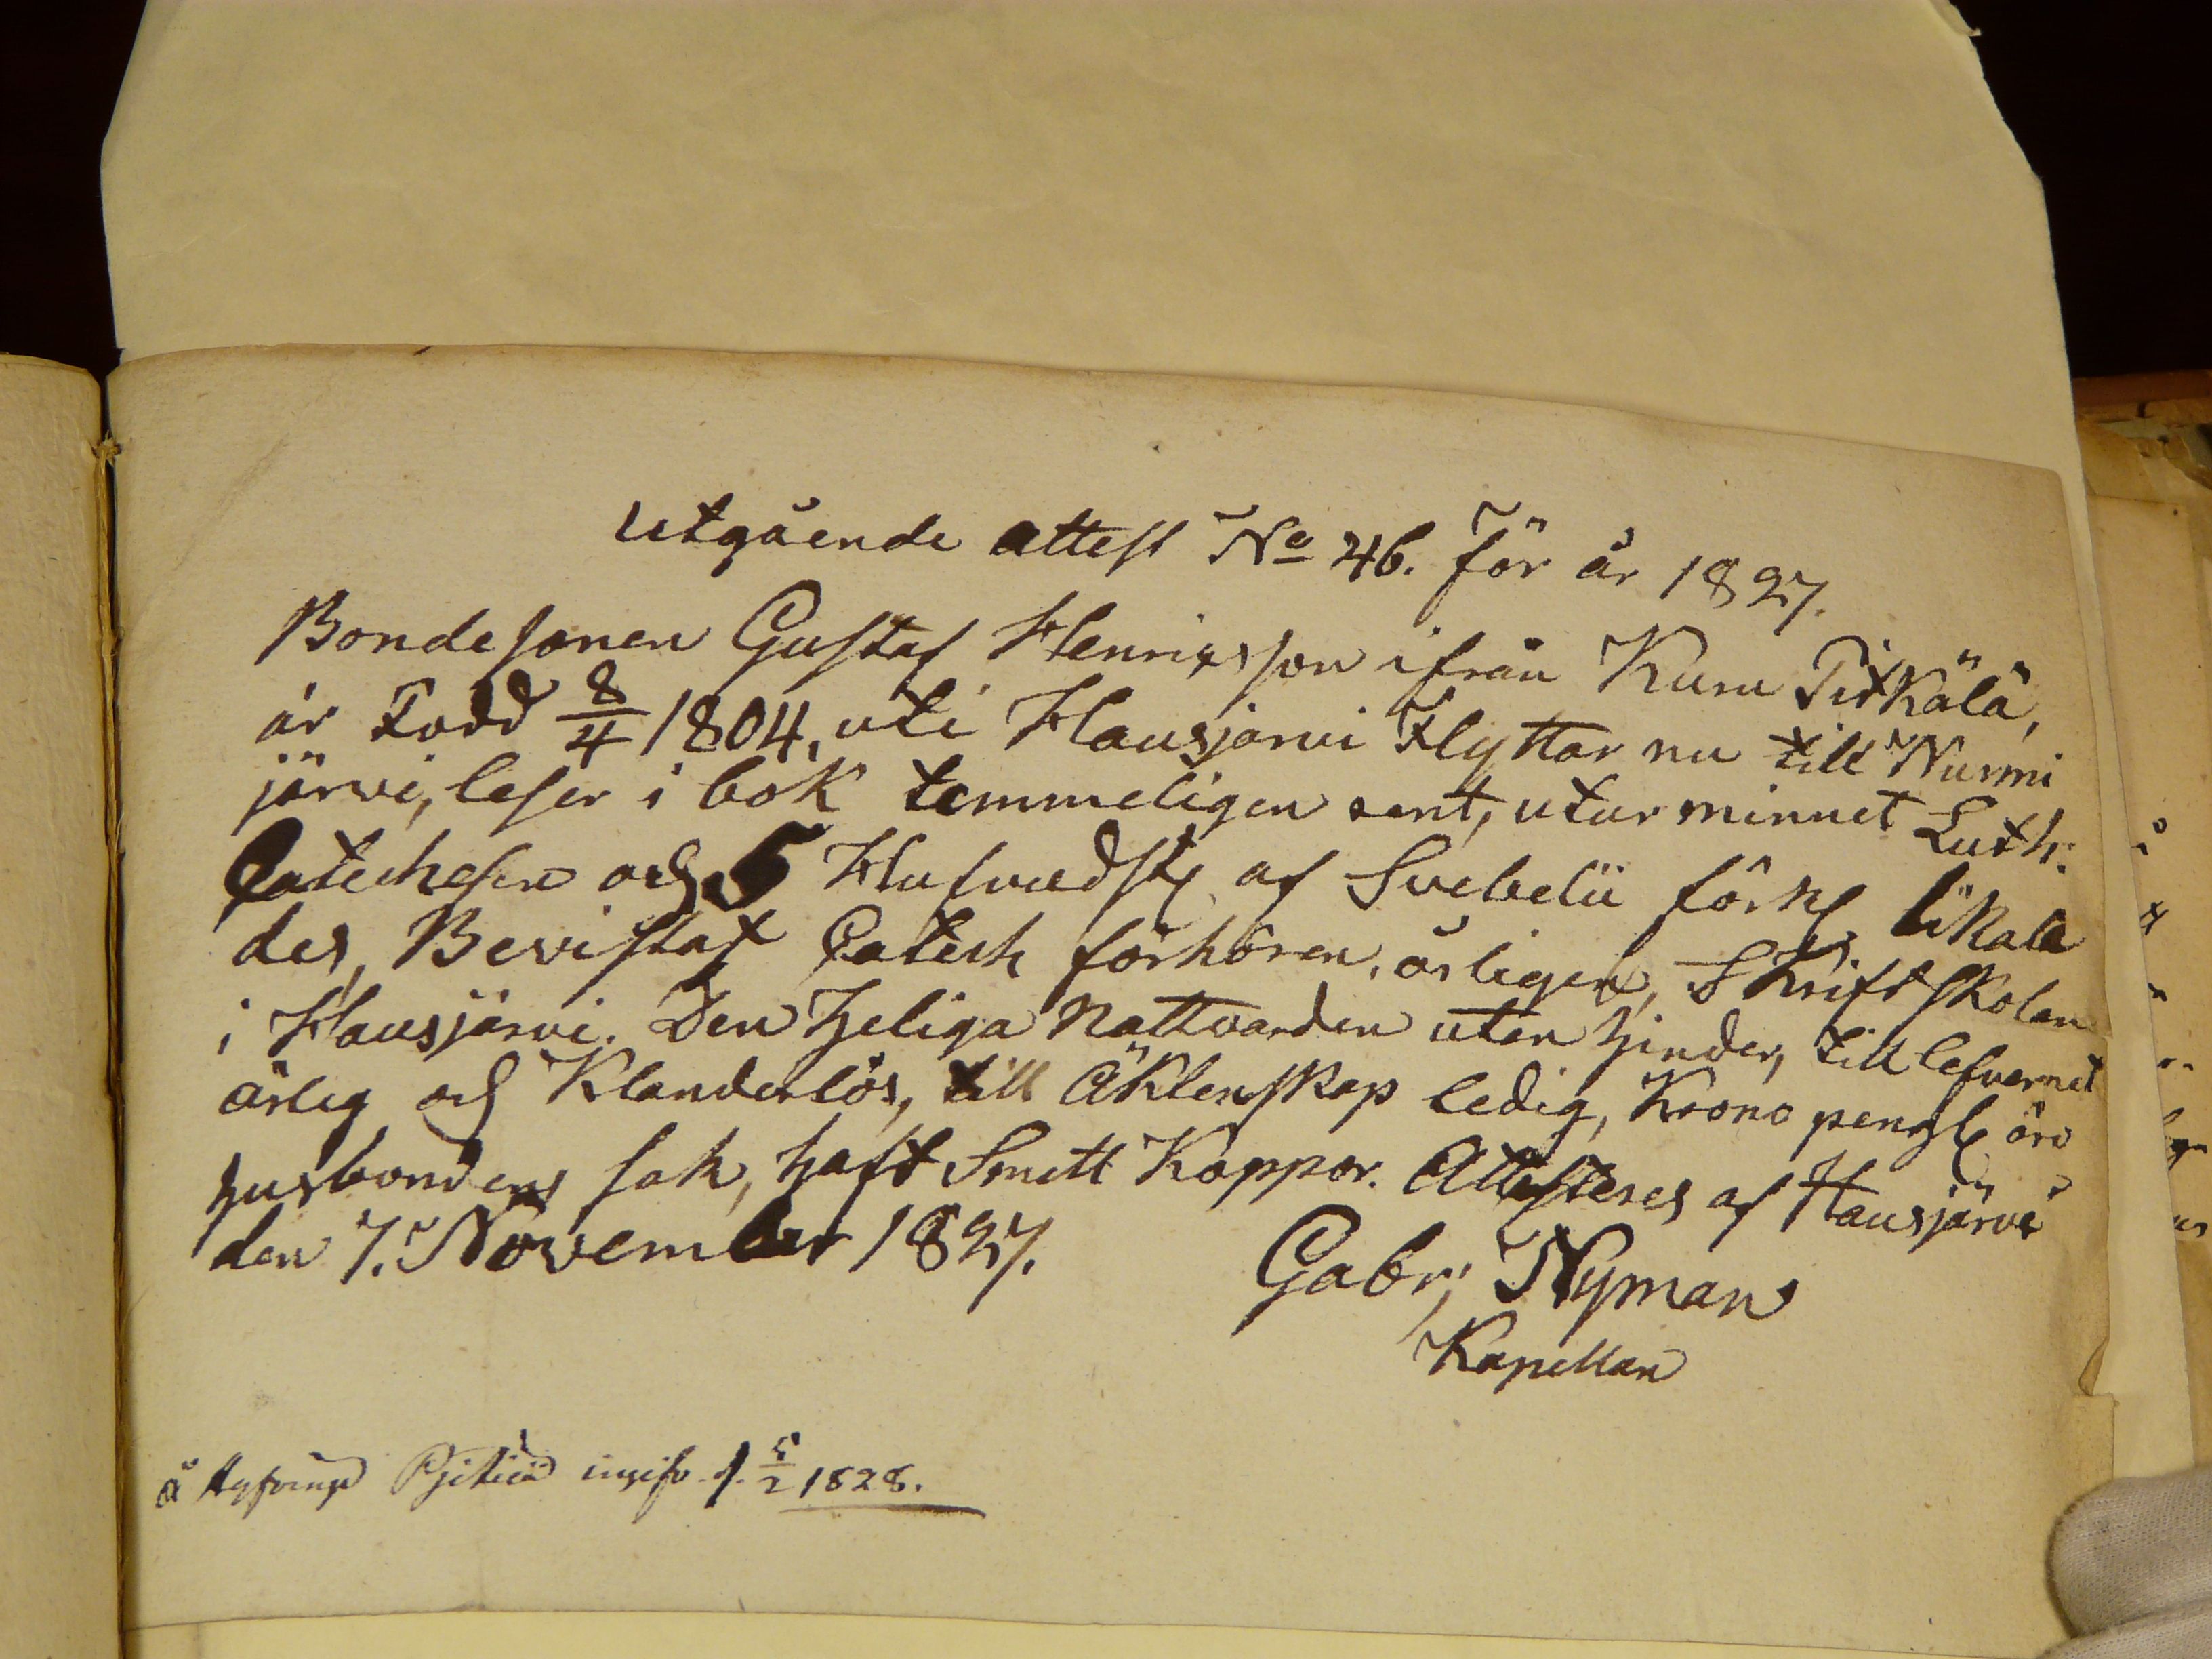 Utgående attest No 46. för år 1827.
Bondesonen Gustaf Henrixsson ifrån Kuru Pitkälä,
är Född 8/4 1804, uti Hausjärvi Flyttar nu till Nurmi
järvi, leser i bok temmeligen rent, utur minnet Luth:
Catechesen och 5 Hufvudst af Svebelii förkl likale
des, Bevistat Catech förhören, årligen, Skriftskolan
i Hausjärvi. Den Heliga Nattvarden utan hinder, till lefvernet
ärlig och Klanderlös, till Äktenskap ledig, Krono peng äro
husbondens sak, haft Smitt Koppor. Attesteres af Hausjärvi
den 7. November 1827.
Gabr; Nyman
Kapellan
å 5/2 1828.